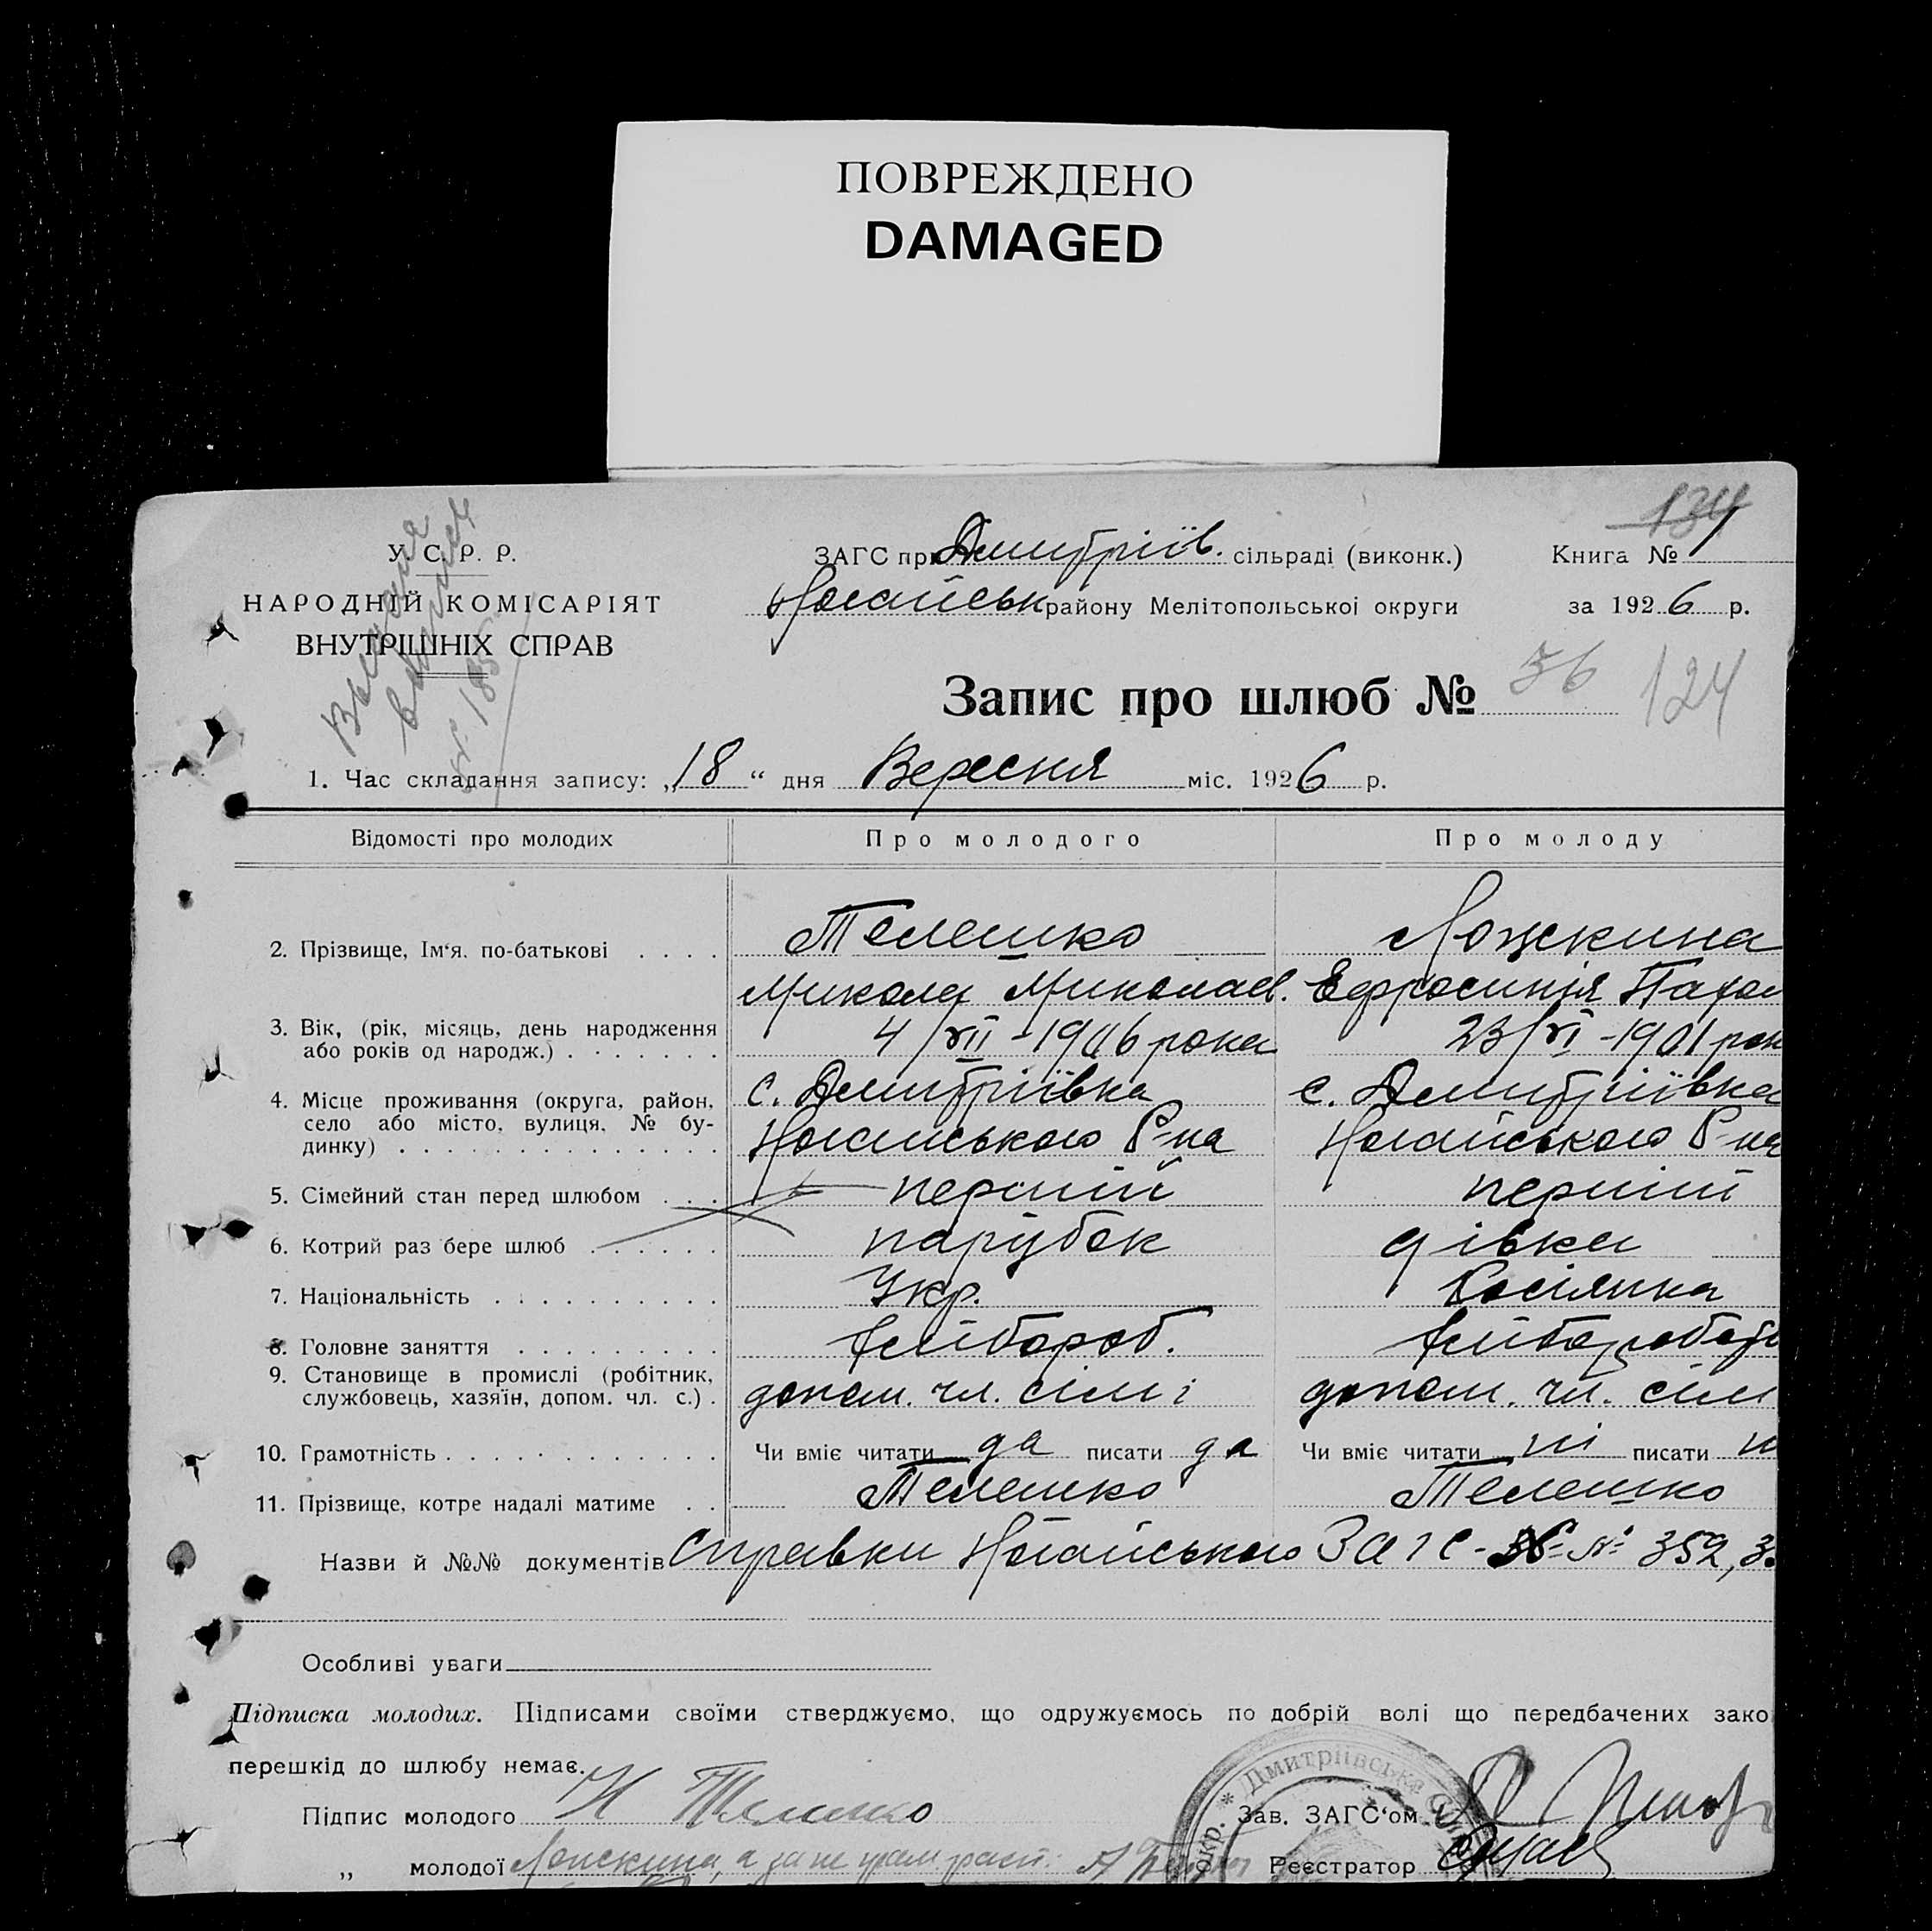 ПОВРЕЖДЕНО
DAMAGED
134
У. С. Р. Р.
НАРОДНІЙ КОМІСАРІЯТ
ВНУТРІШНІХ СПРАВ
ЗАГС при Дмитріїв. сільраді (виконк.)
Книга № 1
Ногайськ району Мелітопольської округи
за 1926 р.
Запис про шлюб № 36
124
1. Час складання запису: „18“ дня Вересня міс. 1926 р.
Відомості про молодих
Про молодого
Про молоду
2. Прізвище, Ім'я. по-батькові . . . .
Телешко
Ложкина
Микола Миколаєв. Ефросинія
3. Вік, (рік, місяць, день народження
або років од народж.) . . . . . . .
4/VII-1906 рока
23/VI-1901 рок
4. Місце проживання (округа, район,
село або місто, вулиця, № бу-
динку) . . . . . . . . . . . . . .
с. Дмитріївка
с. Дмитріївка
Ногайського Р-на
Ногайського Р-на
5. Сімейний стан перед шлюбом . . .
перший
перший
6. Котрий раз бере шлюб . . . . . .
парубок
дівка
7. Національність . . . . . . . . . .
Укр.
Росіянка
8. Головне заняття . . . . . . . . .
хлібороб.
9. Становище в промислі (робітник,
службовець, хазяїн, допом. чл. с.) .
допом. чл. сімі
допом. чл. сім
10. Грамотність . . . . . . . . . . . .
Чи вміє читати да писати да
Чи вміє читати ні писати н
11. Прізвище, котре надалі матиме . .
Телешко
Телешко
Назви й №№ документів Справки Ногайського Загс- № 352, 3
Особливі уваги
Підписка молодих. Підписами своїми стверджуємо, що одружуємось по добрій волі що передбачених зако
перешкід до шлюбу немає.
Підпис молодого Н Телешко
Зав. ЗАГС'ом
„ молодої Ложкина, а за не грам расп.
Реєстратор
* Дмитріівська
окр.